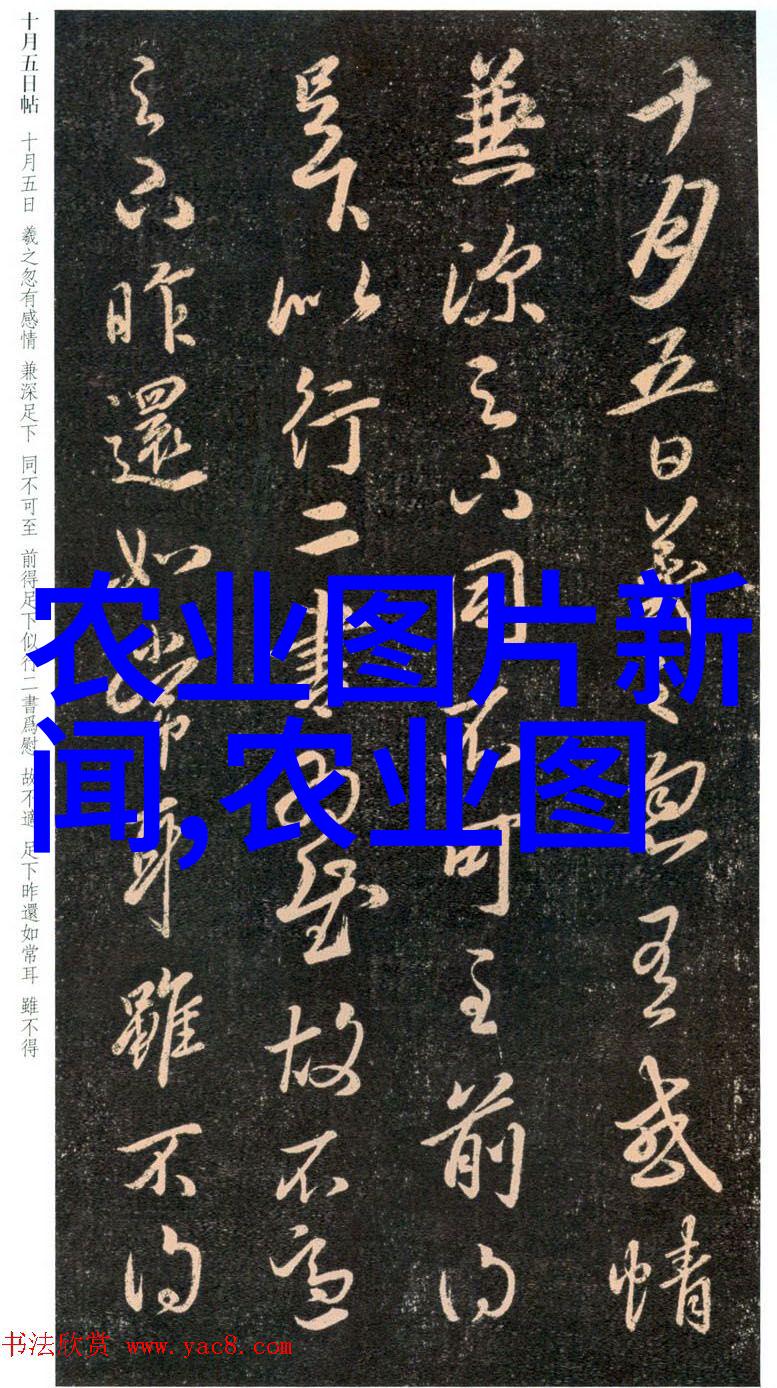 十月五日羲之忽有感情
兼深足下同不可至前得
足下似行二書爲慰故不適
足下昨還如常耳雖不得
十月五日帖 十月五日 羲之忽有感情 兼深足下 同不可至 前得足下似行二書爲慰 故不適 足下昨還如常耳 雖不得
农业图片新
闻,农业图
书法欣赏 www.yac8.com